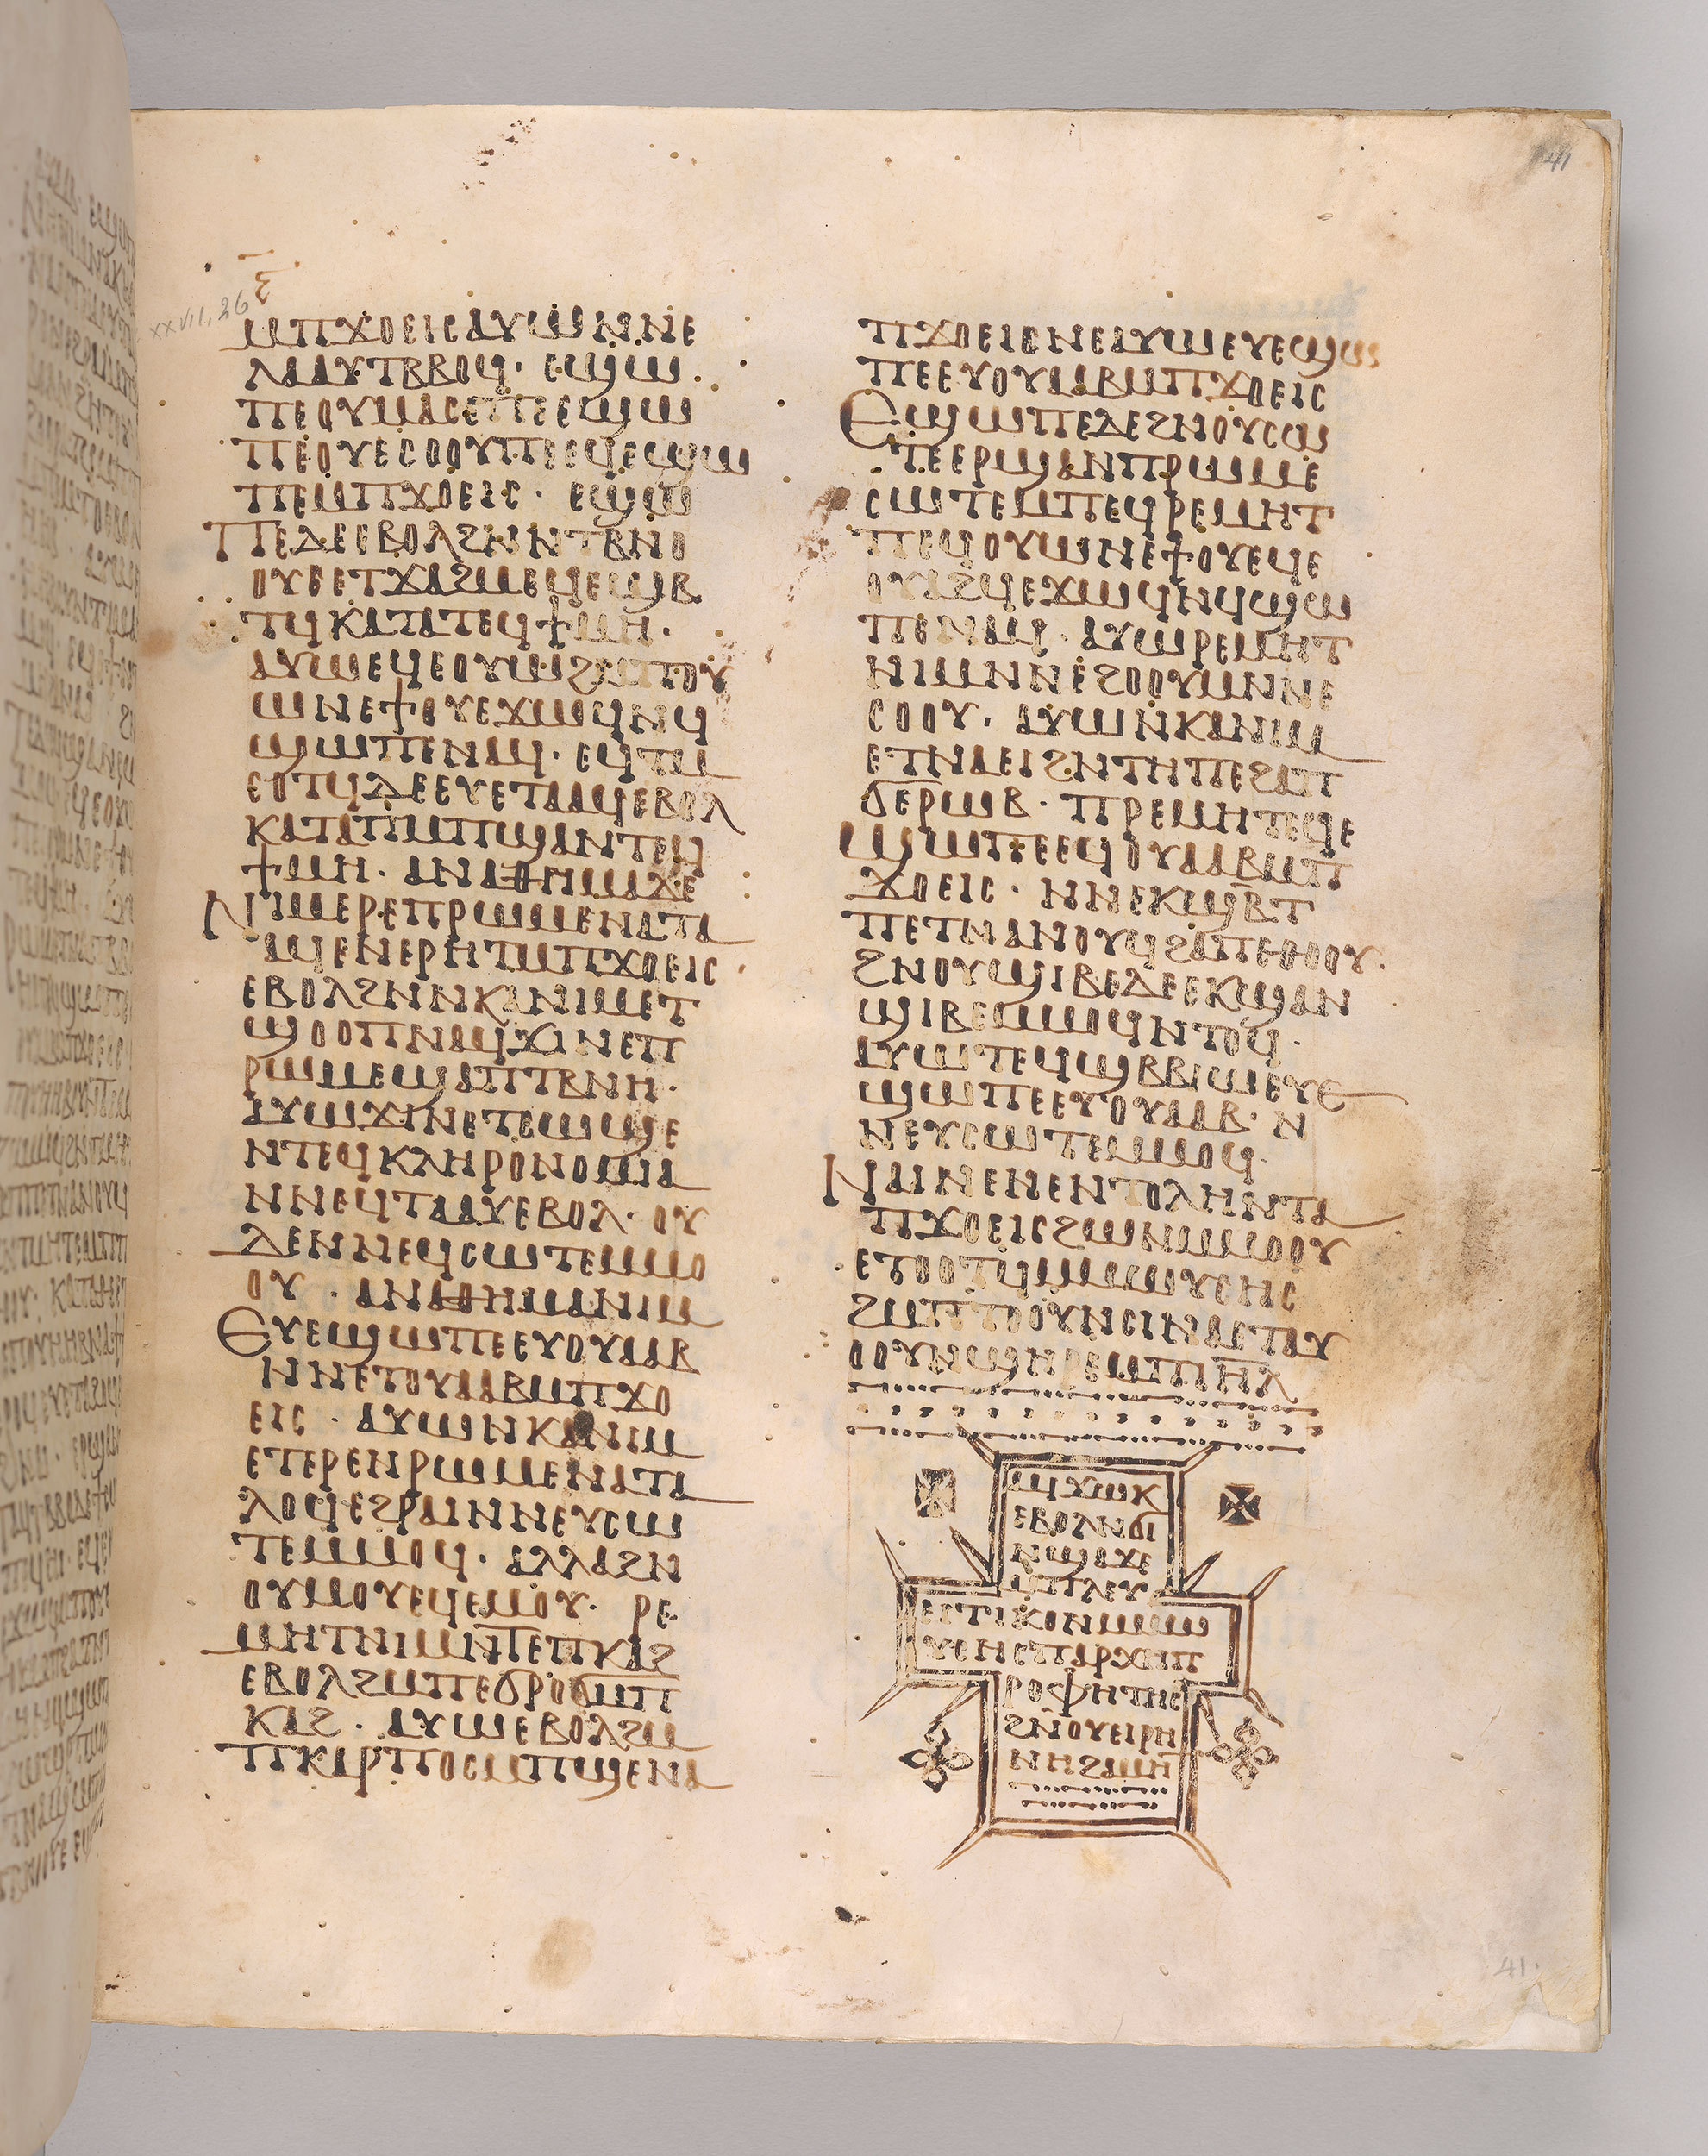 41
ⲝ̅
xxvii, 26
ⲙⲡϫⲟⲉⲓⲥⲁⲩⲱⲛⲛⲉ
ⲗⲁⲁⲩⲧⲃⲃⲟϥ· ⲉϣⲱ
ⲡⲉⲟⲩⲙⲁⲥⲉⲡⲉⲉϣⲱ
ⲡⲉⲟⲩⲉⲥⲟⲟⲩⲡⲉⲉϥⲉϣⲱ
ⲡⲉⲙⲡϫⲟⲉⲓⲥ· ⲉϣⲱ
ⲡⲉⲇⲉⲉⲃⲟⲗϩⲛⲛⲧⲃⲛⲟ
ⲟⲩⲉⲉⲧϫⲁϩⲙⲉϥⲉϣⲃ
ⲧϥⲕⲁⲧⲁⲧⲉϥϯⲙⲏ·
ⲁⲩⲱⲉϥⲉⲟⲩⲱϩⲙⲡⲟⲩ
ⲱⲛⲉϯⲟⲩⲉϫⲱϥⲛϥ
ϣⲱⲡⲉⲛⲁϥ· ⲉϥⲧⲙ
ⲥⲟⲧϥⲇⲉⲉⲩⲉⲧⲁⲁϥⲉⲃⲟⲗ
ⲕⲁⲧⲁⲡⲙⲡϣⲁⲛⲧⲉϥ
ϯⲙⲏ· ⲁⲛⲁⲑⲏⲙⲁϫⲉ
ⲛⲓⲙⲉⲣⲉⲡⲣⲱⲙⲉⲛⲁⲧⲁ
ⲁϥⲉⲛⲉⲣⲏⲧⲙⲡϫⲟⲉⲓⲥ
ⲉⲃⲟⲗϩⲛⲛⲕⲁⲛⲓⲙⲉⲧ
ϣⲟⲟⲡⲛⲁϥϫⲓⲛⲉⲡ
ⲣⲱⲙⲉϣⲁⲡⲧⲃⲛⲏ·
ⲁⲩⲱϫⲓⲛⲉⲧⲥⲱϣⲉ
ⲛⲧⲉϥⲕⲗⲏⲣⲟⲛⲟⲙⲓⲁ
ⲛⲛⲉϥⲧⲁⲁⲩⲉⲃⲟⲗ· ⲟⲩ
ⲇⲉⲛⲛⲉϥⲥⲱⲧⲉⲙⲙⲟ
ⲟⲩ· ⲁⲛⲁⲑⲏⲙⲁⲛⲓⲙ
ⲉⲩⲉϣⲱⲡⲉⲉⲩⲟⲩⲁⲁⲃ
ⲛⲛⲉⲧⲟⲩⲁⲁⲃⲙⲡϫⲟ
ⲉⲓⲥ· ⲁⲩⲱⲛⲕⲁⲛⲓⲙ
ⲉⲧⲉⲣⲉⲛⲣⲱⲙⲉⲛⲁⲧⲁ
ⲗⲟϥⲉϩⲣⲁⲓⲛⲛⲉⲩⲥⲱ
ⲧⲉⲙⲙⲟϥ· ⲁⲗⲗⲁϩⲛ
ⲟⲩⲙⲟⲩⲉϥⲉⲙⲟⲩ· ⲣⲉ
ⲙⲏⲧⲛⲓⲙⲛⲧⲉⲡⲕⲁϩ
ⲉⲃⲟⲗϩⲙⲡⲉϭⲣⲟϭⲙⲡ
ⲕⲁϩ· ⲁⲩⲱⲉⲃⲟⲗϩⲙ
ⲡⲕⲁⲣⲡⲟⲥⲙⲡϣⲉⲛⲁ
ⲡϫⲟⲉⲓⲥⲛⲉⲁⲩⲱⲉⲩⲉϣⲱ
ⲡⲉⲉⲩⲟⲩⲁⲁⲃⲙⲡϫⲟⲉⲓⲥ
ⲉϣⲱⲡⲉⲇⲉϩⲛⲟⲩⲥⲱ
ⲧⲉⲉⲣϣⲁⲛⲡⲣⲱⲙⲉ
ⲥⲱⲧⲉⲙⲡⲉϥⲣⲉⲙⲏⲧ
ⲡⲉϥⲟⲩⲱⲛⲉϯⲟⲩⲉϥⲉ
ⲟⲩⲁϩϥⲉϫⲱϥⲛϥϣⲱ
ⲡⲉⲛⲁϥ· ⲁⲩⲱⲣⲉⲙⲏⲧ
ⲛⲓⲙⲛⲛⲉϩⲟⲟⲩⲙⲛⲛⲉ
ⲥⲟⲟⲩ· ⲁⲩⲱⲛⲕⲁⲛⲓⲙ
ⲉⲧⲛⲁⲉⲓϩⲛⲧⲏⲡⲉϩⲁⲡ
ϭⲉⲣⲱⲃ· ⲡⲣⲉⲙⲏⲧⲉϥⲉ
ϣⲱⲡⲉⲉϥⲟⲩⲁⲁⲃⲙⲡ
ϫⲟⲉⲓⲥ· ⲛⲛⲉⲕϣⲃⲧ
ⲡⲉⲧⲛⲁⲛⲟⲩϥϩⲁⲡⲉⲑⲟⲟⲩ·
ϩⲛⲟⲩϣⲓⲃⲉⲇⲉⲉⲕϣⲁⲛ
ϣⲓⲃⲉⲙⲙⲟϥⲛⲧⲟϥ·
ⲁⲩⲱⲧⲉϥϣⲃⲃⲓⲱⲉⲩⲉ
ϣⲱⲡⲉⲉⲩⲟⲩⲁⲁⲃ· ⲛ
ⲛⲉⲩⲥⲱⲧⲉⲙⲙⲟϥ·
ⲛⲁⲓⲛⲉⲛⲉⲛⲧⲟⲗⲏⲛⲧⲁ
ⲡϫⲟⲉⲓⲥϩⲱⲛⲙⲙⲟⲟⲩ
ⲉⲧⲟⲟⲧϥⲙⲙⲱⲩⲥⲏⲥ
ϩⲙⲡⲧⲟⲟⲩⲛⲥⲓⲛⲁⲉⲧⲁⲩ
ⲟⲟⲩⲛϣⲏⲣⲉⲙⲡⲓⲏ̅ⲗ̅
ⲁϥϫⲱⲕ
ⲉⲃⲟⲗⲛϭⲓ
ⲡϣⲁϫⲉ
ⲙⲡⲗⲉⲩ
ⲉⲓⲧⲓⲕⲟⲛⲙⲙⲱ
ⲩⲥⲏⲥⲡⲁⲣⲭⲏⲡ
ⲣⲟⲫⲏⲧⲏⲥ
ϩⲛⲟⲩⲉⲓⲣⲏ
ⲛⲏϩⲁⲙⲏⲛ
41.